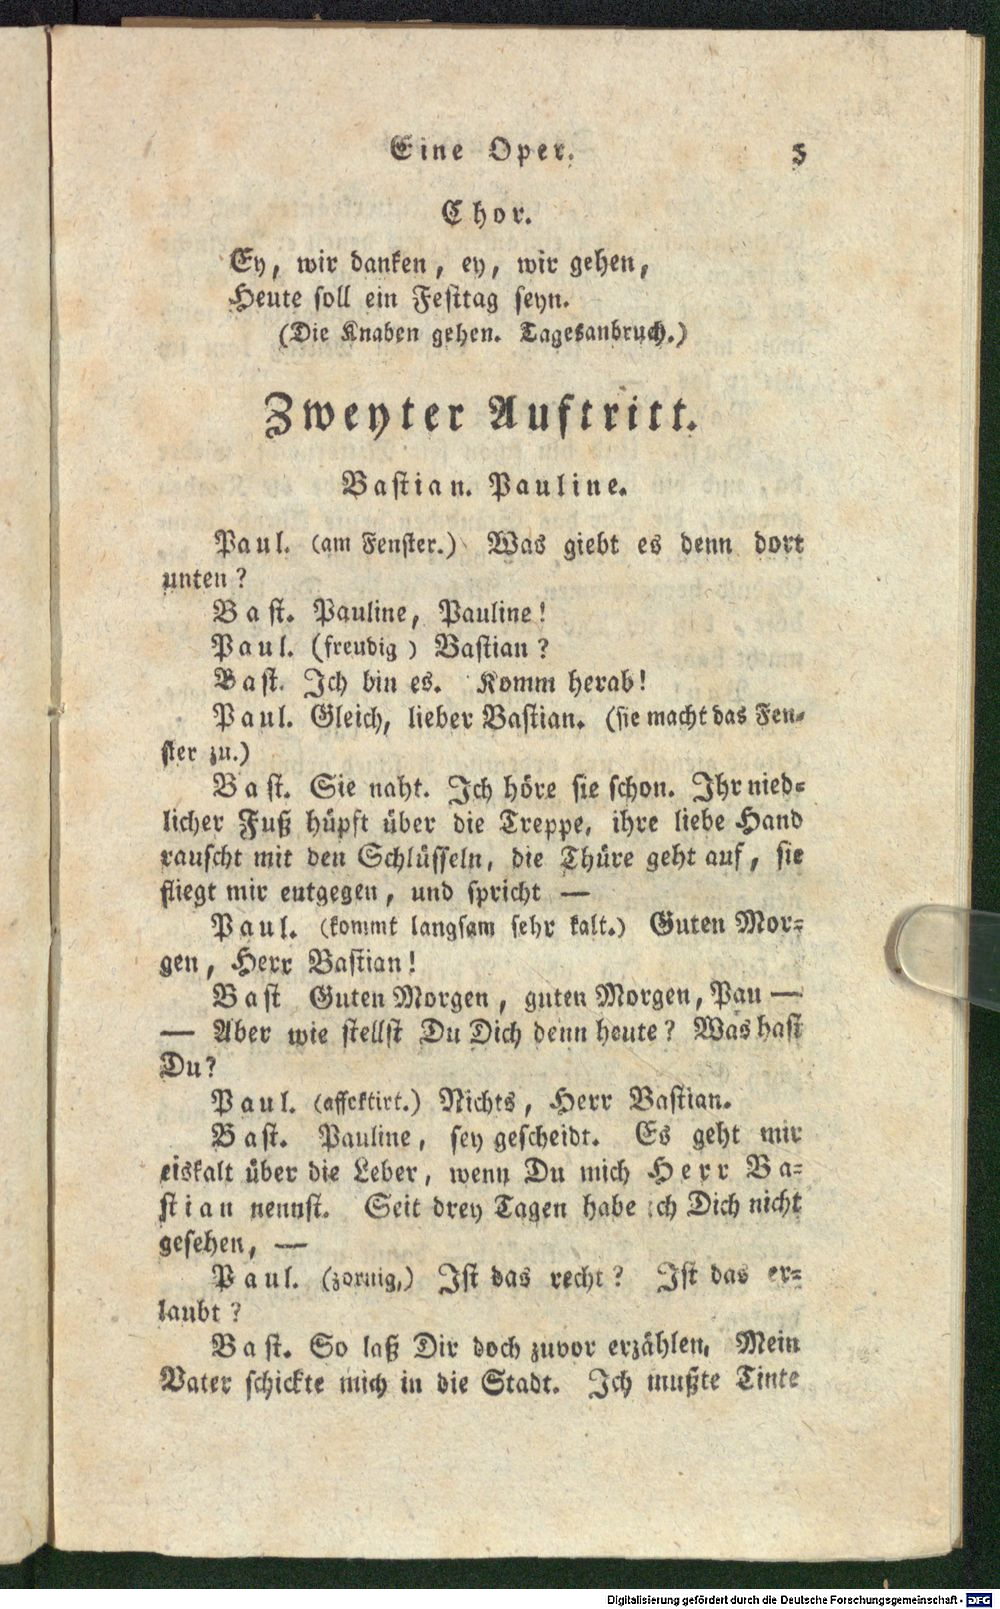 Eine Oper. 5
Chor.
Ey, wir danken, ey, wir gehen,
Heute soll ein Festtag seyn.
(Die Knaben gehen. Tagesanbruch.)
Zweyter Auftritt.
Bastian. Pauline.
Paul. (am Fenster.) Was giebt es denn dort
unten?
Bast. Pauline, Pauline!
Paul. (freudig) Bastian?
Bast. Ich bin es. Komm herab!
Paul. Gleich, lieber Bastian. (sie macht das Fen-
ster zu.)
Bast. Sie naht. Ich höre sie schon. Ihr nied-
licher Fuß hüpft über die Treppe, ihre liebe Hand
rauscht mit den Schlüsseln, die Thüre geht auf, sie
fliegt mir entgegen, und spricht —
Paul. (kommt langsam sehr kalt.) Guten Mor-
gen, Herr Bastian!
Bast Guten Morgen, guten Morgen, Pau —
— Aber wie stellst Du Dich denn heute? Was hast
Du?
Paul. (affektirt.) Nichts, Herr Bastian.
Bast. Pauline, sey gescheidt. Es geht mir
eiskalt über die Leber, wenn Du mich Herr Ba-
stian nennst. Seit drey Tagen habe ich Dich nicht
gesehen, —
Paul. (zornig,) Ist das recht? Ist das er-
laubt?
Bast. So laß Dir doch zuvor erzählen, Mein
Vater schickte mich in die Stadt. Ich mußte Tinte
Digitalisierung gefördert durch die Deutsche Forschungsgemeinschaft - DFG